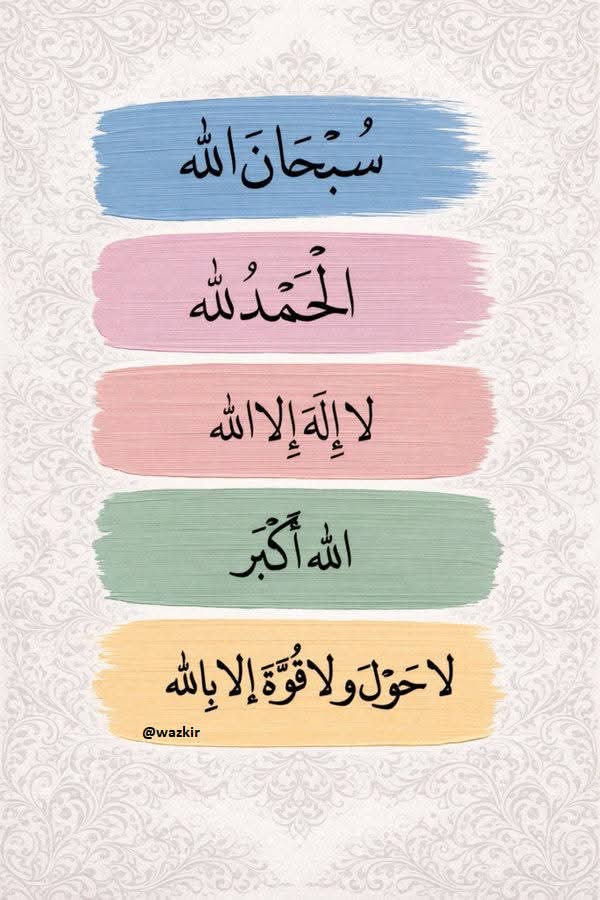 سُبْحَانَ الله
الْحَمْدُ لله
لا إِلَهَ إِلا الله
الله أَكْبَر
لا حَوْلَ ولا قُوَّةَ إلا بِالله
@wazkir